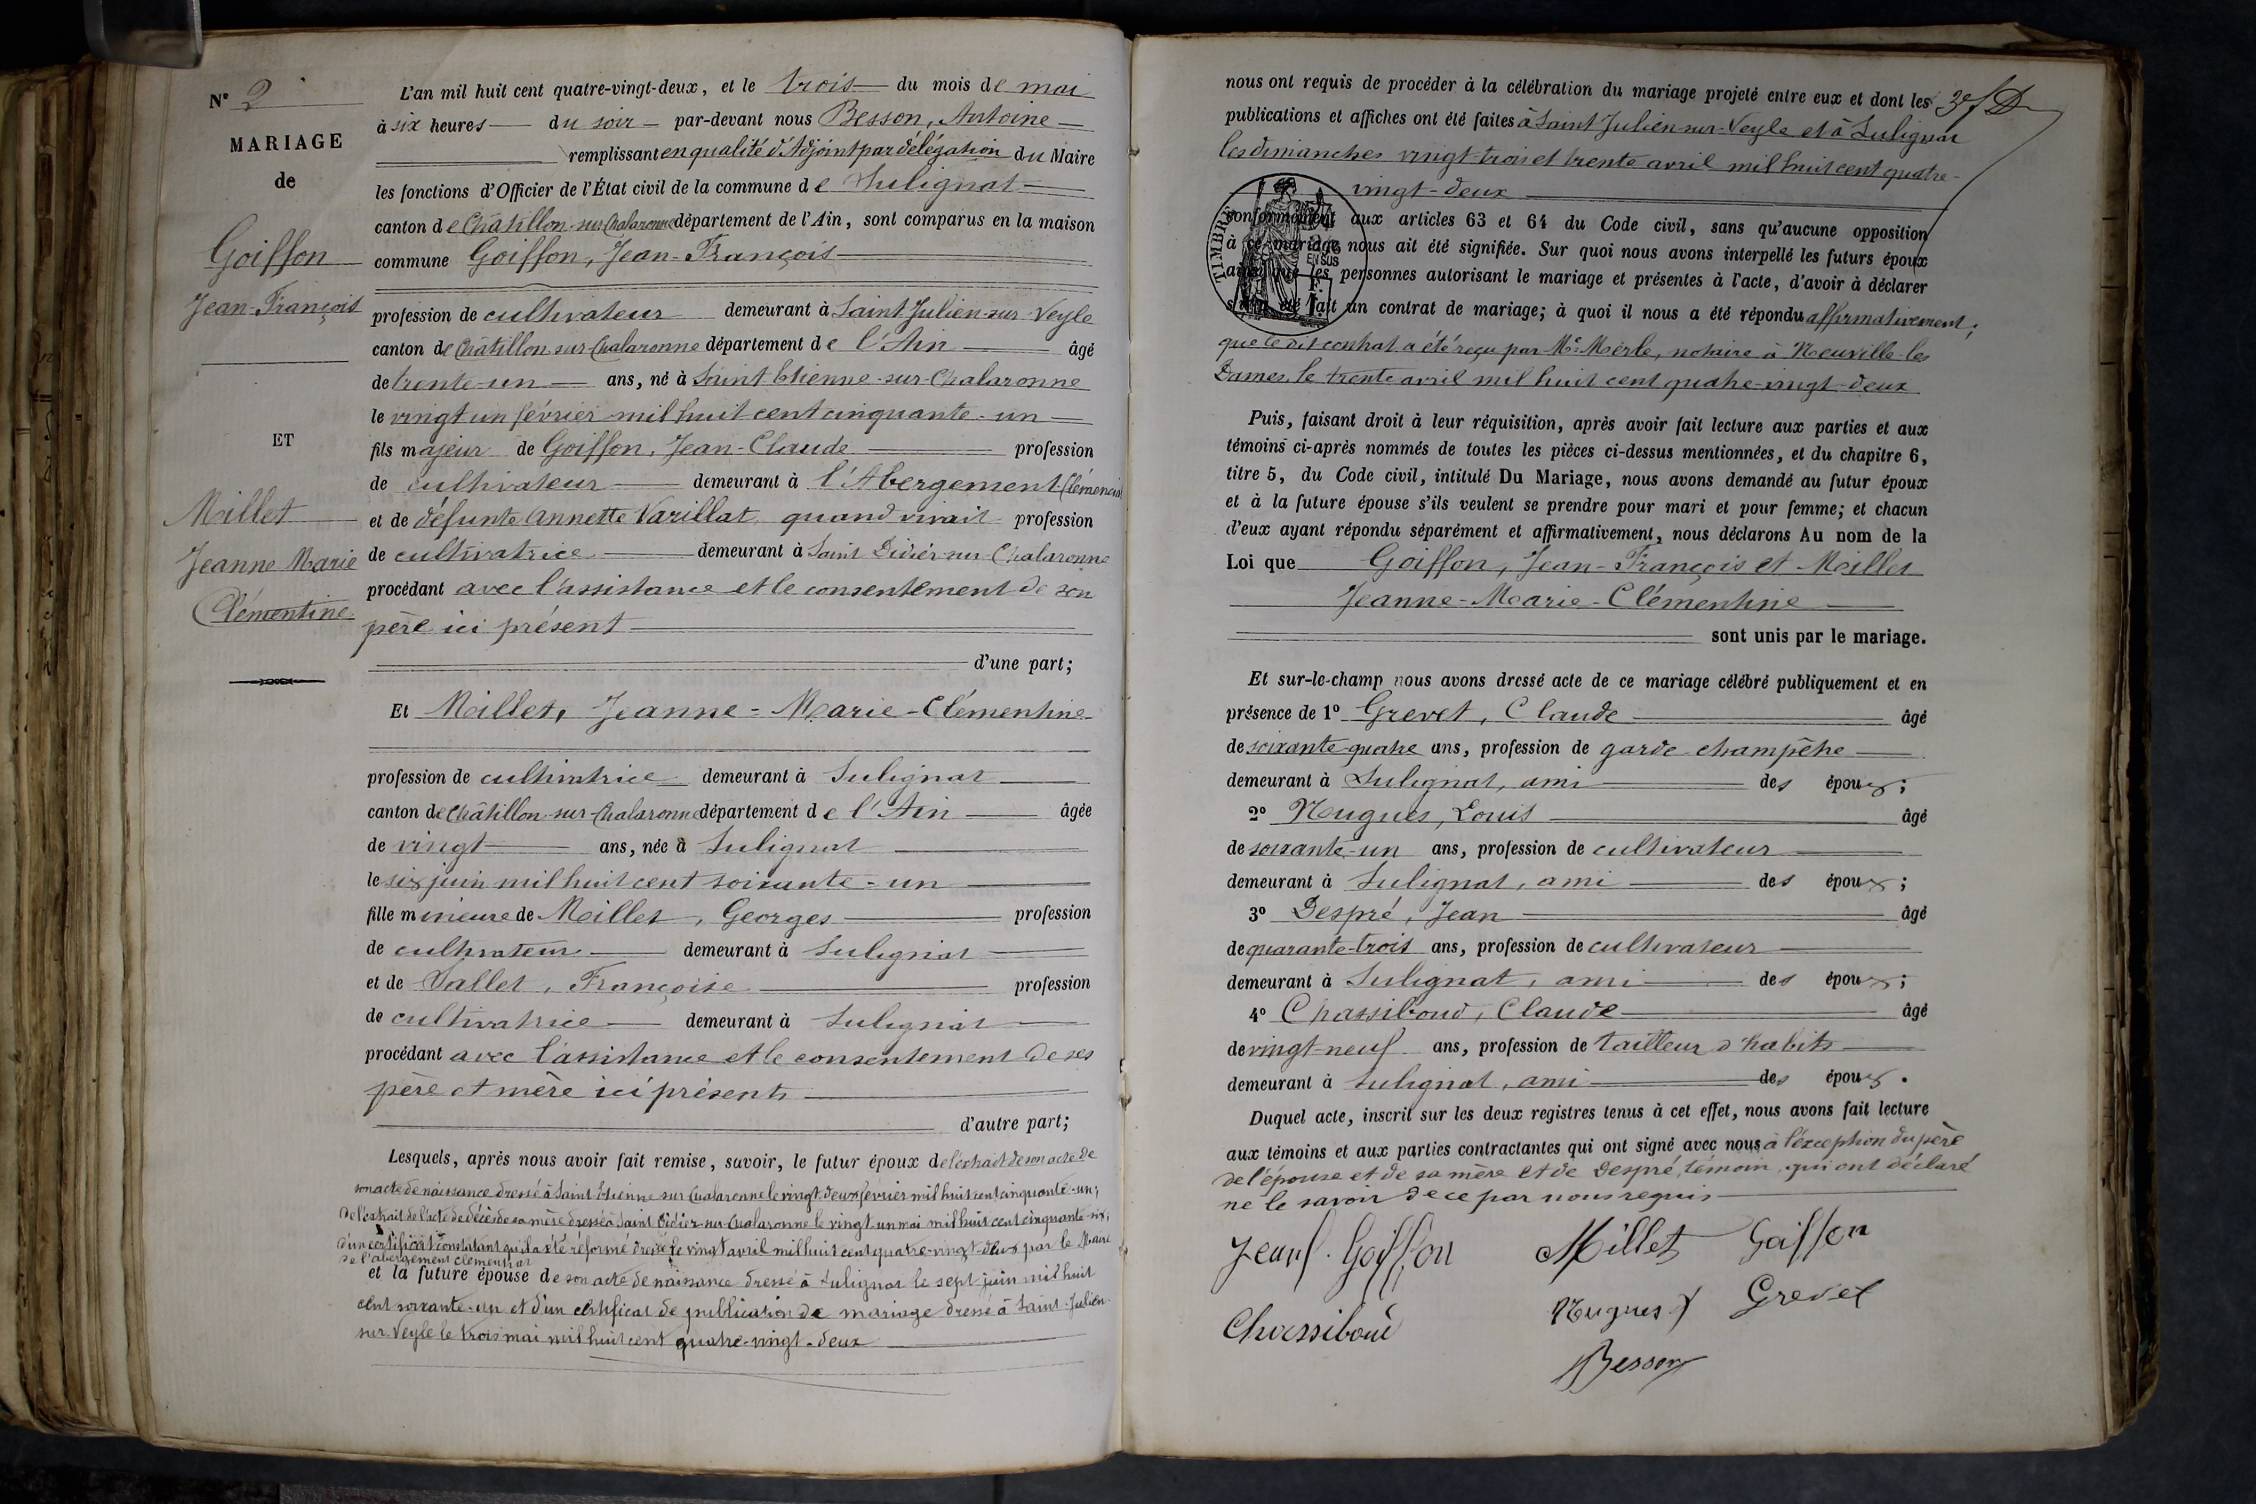 N° 2
MARIAGE
de
Goiffon
Jean-François
ET
Millet
Jeanne Marie
Clémentine
L'an mil huit cent quatre-vingt-deux, et le trois du mois de mai
à six heures du soir par-devant nous Besson, Antoine
remplissant en qualité d'Adjoint par délégation du Maire
les fonctions d'Officier de l'État civil de la commune de Sulignat
canton de Châtillon-sur-Chalaronne département de l'Ain, sont comparus en la maison
commune Goiffon, Jean-François
profession de cultivateur demeurant à Saint Julien-sur-Veyle
canton de Châtillon sur Chalaronne département de l'Ain âgé
de trente-un ans, né à Saint Etienne-sur-Chalaronne
le vingt un février mil huit cent cinquante-un
fils majeur de Goiffon, Jean-Claude profession
de cultivateur demeurant à l'Abergement-Clémencia
et de défunte Annette Varillat quand vivait profession
de cultivatrice demeurant à Saint Didier-sur-Chalaronne
procédant avec l'assistance et le consentement de son
père ici présent
d'une part;
Et Millet, Jeanne-Marie-Clémentine
profession de cultivatrice demeurant à Sulignat
canton de Châtillon-sur-Chalaronne département de l'Ain âgée
de vingt ans, née à Sulignat
le six juin mil huit cent soixante-un
fille mineure de Millet, Georges profession
de cultivateur demeurant à Sulignat
et de Sallet, Françoise profession
de cultivatrice demeurant à Sulignat
procédant avec l'assistance et le consentement de ses
père et mère ici présents
d'autre part;
Lesquels, après nous avoir fait remise, savoir, le futur époux de l'extrait de son acte de
son acte de naissance dressé à Saint Etienne sur Chalaronne le vingt-deux février mil huit cent cinquante-un;
de l'extrait de l'acte de décès de sa mère dressé à Saint Didier-sur-Chalaronne le vingt-un mai mil huit cent cinquante-six;
d'un certificat constatant qu'il a été réformé dressé le vingt avril mil huit cent quatre-vingt-deux par le Maire
de l'abergement clémenciat
et la future épouse de son acte de naissance dressé à Sulignat le sept juin mil huit
cent soixante-un et d'un certificat de publication de mariage dressé à Saint-Julien-
sur-Veyle le trois mai mil huit cent quatre-vingt-deux
nous ont requis de procéder à la célébration du mariage projeté entre eux et dont les
publications et affiches ont été faites à Saint Julien-sur-Veyle et à Sulignat
les dimanches vingt-trois et trente avril mil huit cent quatre-
vingt-deux
TIMBRE
EN SUS
conformément aux articles 63 et 64 du Code civil, sans qu'aucune opposition
à ce mariage nous ait été signifiée. Sur quoi nous avons interpellé les futurs époux
ainsi que les personnes autorisant le mariage et présentes à l'acte, d'avoir à déclarer
s'il a été fait un contrat de mariage; à quoi il nous a été répondu affirmativement;
que le dit contrat a été reçu par Me Merle, notaire à Neuville-les
Dames, le trente avril mil huit cent quatre-vingt-deux
Puis, faisant droit à leur réquisition, après avoir fait lecture aux parties et aux
témoins ci-après nommés de toutes les pièces ci-dessus mentionnées, et du chapitre 6,
titre 5, du Code civil, intitulé Du Mariage, nous avons demandé au futur époux
et à la future épouse s'ils veulent se prendre pour mari et pour femme; et chacun
d'eux ayant répondu séparément et affirmativement, nous déclarons Au nom de la
Loi que Goiffon, Jean-François et Millet
Jeanne-Marie-Clémentine
sont unis par le mariage.
Et sur-le-champ nous avons dressé acte de ce mariage célébré publiquement et en
présence de 1° Grevet, Claude âgé
de soixante-quatre ans, profession de garde champêtre
demeurant à Sulignat, ami des époux;
2° Nugues, Louis âgé
de soixante-un ans, profession de cultivateur
demeurant à Sulignat, ami des époux;
3° Despré, Jean âgé
de quarante-trois ans, profession de cultivateur
demeurant à Sulignat, ami des époux;
4° Chassiboud, Claude âgé
de vingt-neuf ans, profession de tailleur d'habits
demeurant à Sulignat, ami des époux.
Duquel acte, inscrit sur les deux registres tenus à cet effet, nous avons fait lecture
aux témoins et aux parties contractantes qui ont signé avec nous à l'exception du père
de l'épouse et de sa mère et de Despré, témoin, qui ont déclaré
ne le savoir de ce par nous requis
Jean f. Goiffon Millet Goiffon
Nugues Grevet
Chassiboud
Besson